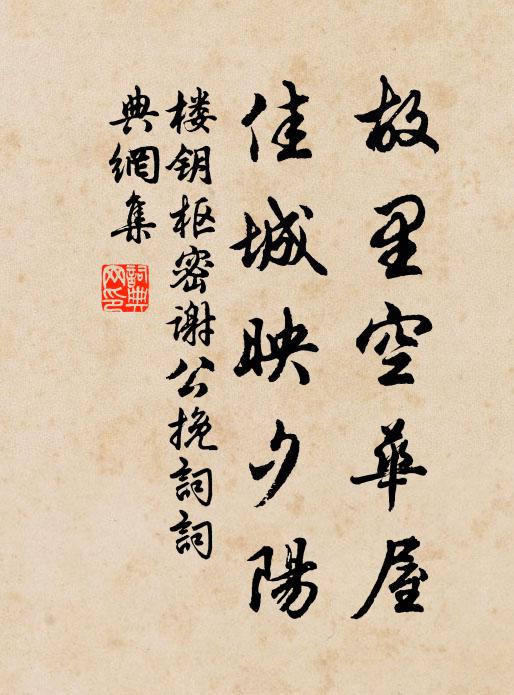 故里空華屋
佳城映夕陽
楼钥枢密谢公挽詞詞
典網集
詞典網印